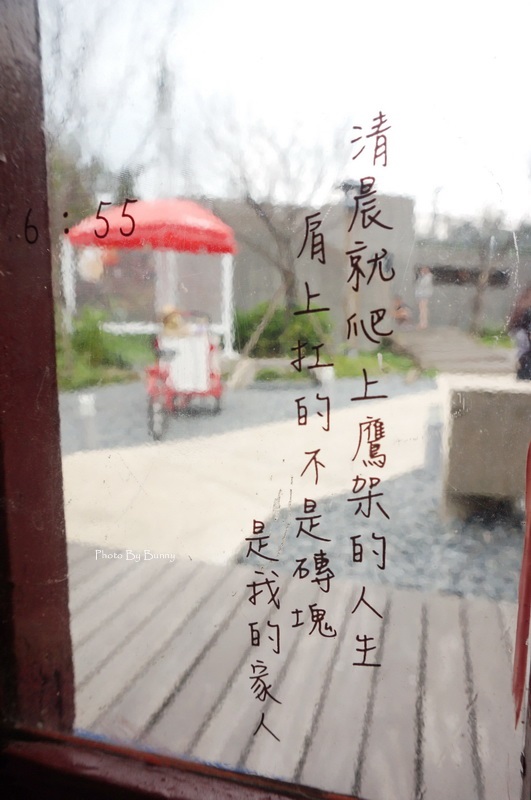 6：55
清晨就爬上鷹架的人生
肩上扛的不是磚塊
是我的家人
Photo By Bunny